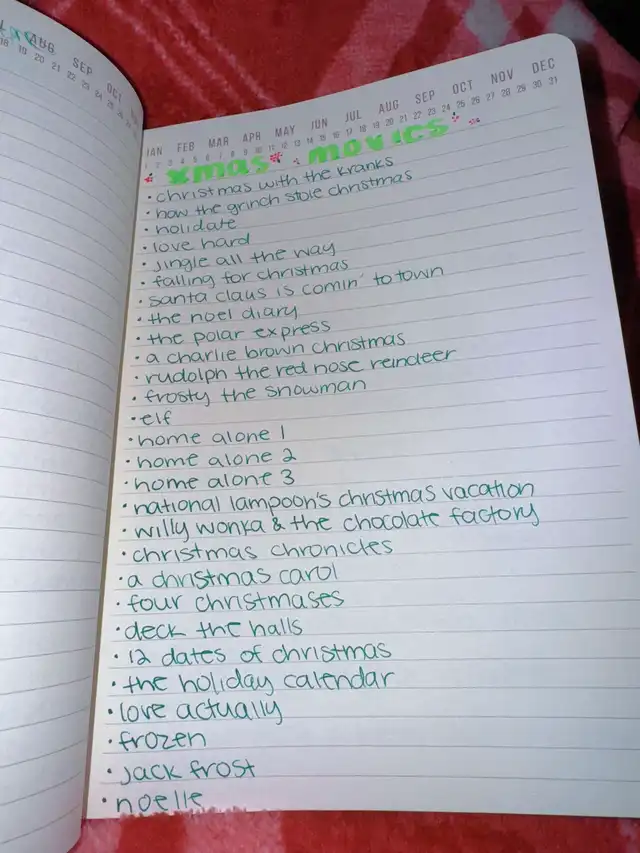 AUG SEP OCT
18 19 20 21 22 23 24 25
JAN FEB MAR APR MAY JUN JUL AUG SEP OCT NOV DEC
1 2 3 4 5 6 7 8 9 10 11 12 13 14 15 16 17 18 19 20 21 22 23 24 25 26 27 28 29 30 31
xmas movies
• christmas with the kranks
• how the grinch stole christmas
• holidate
• love hard
• jingle all the way
• falling for christmas
• santa claus is comin' to town
• the noel diary
• the polar express
• a charlie brown christmas
• rudolph the red nose reindeer
• frosty the snowman
• elf
• home alone 1
• home alone 2
• home alone 3
• national lampoon's christmas vacation
• willy wonka & the chocolate factory
• christmas chronicles
• a christmas carol
• four christmases
• deck the halls
• 12 dates of christmas
• the holiday calendar
• love actually
• frozen
• jack frost
• noelle